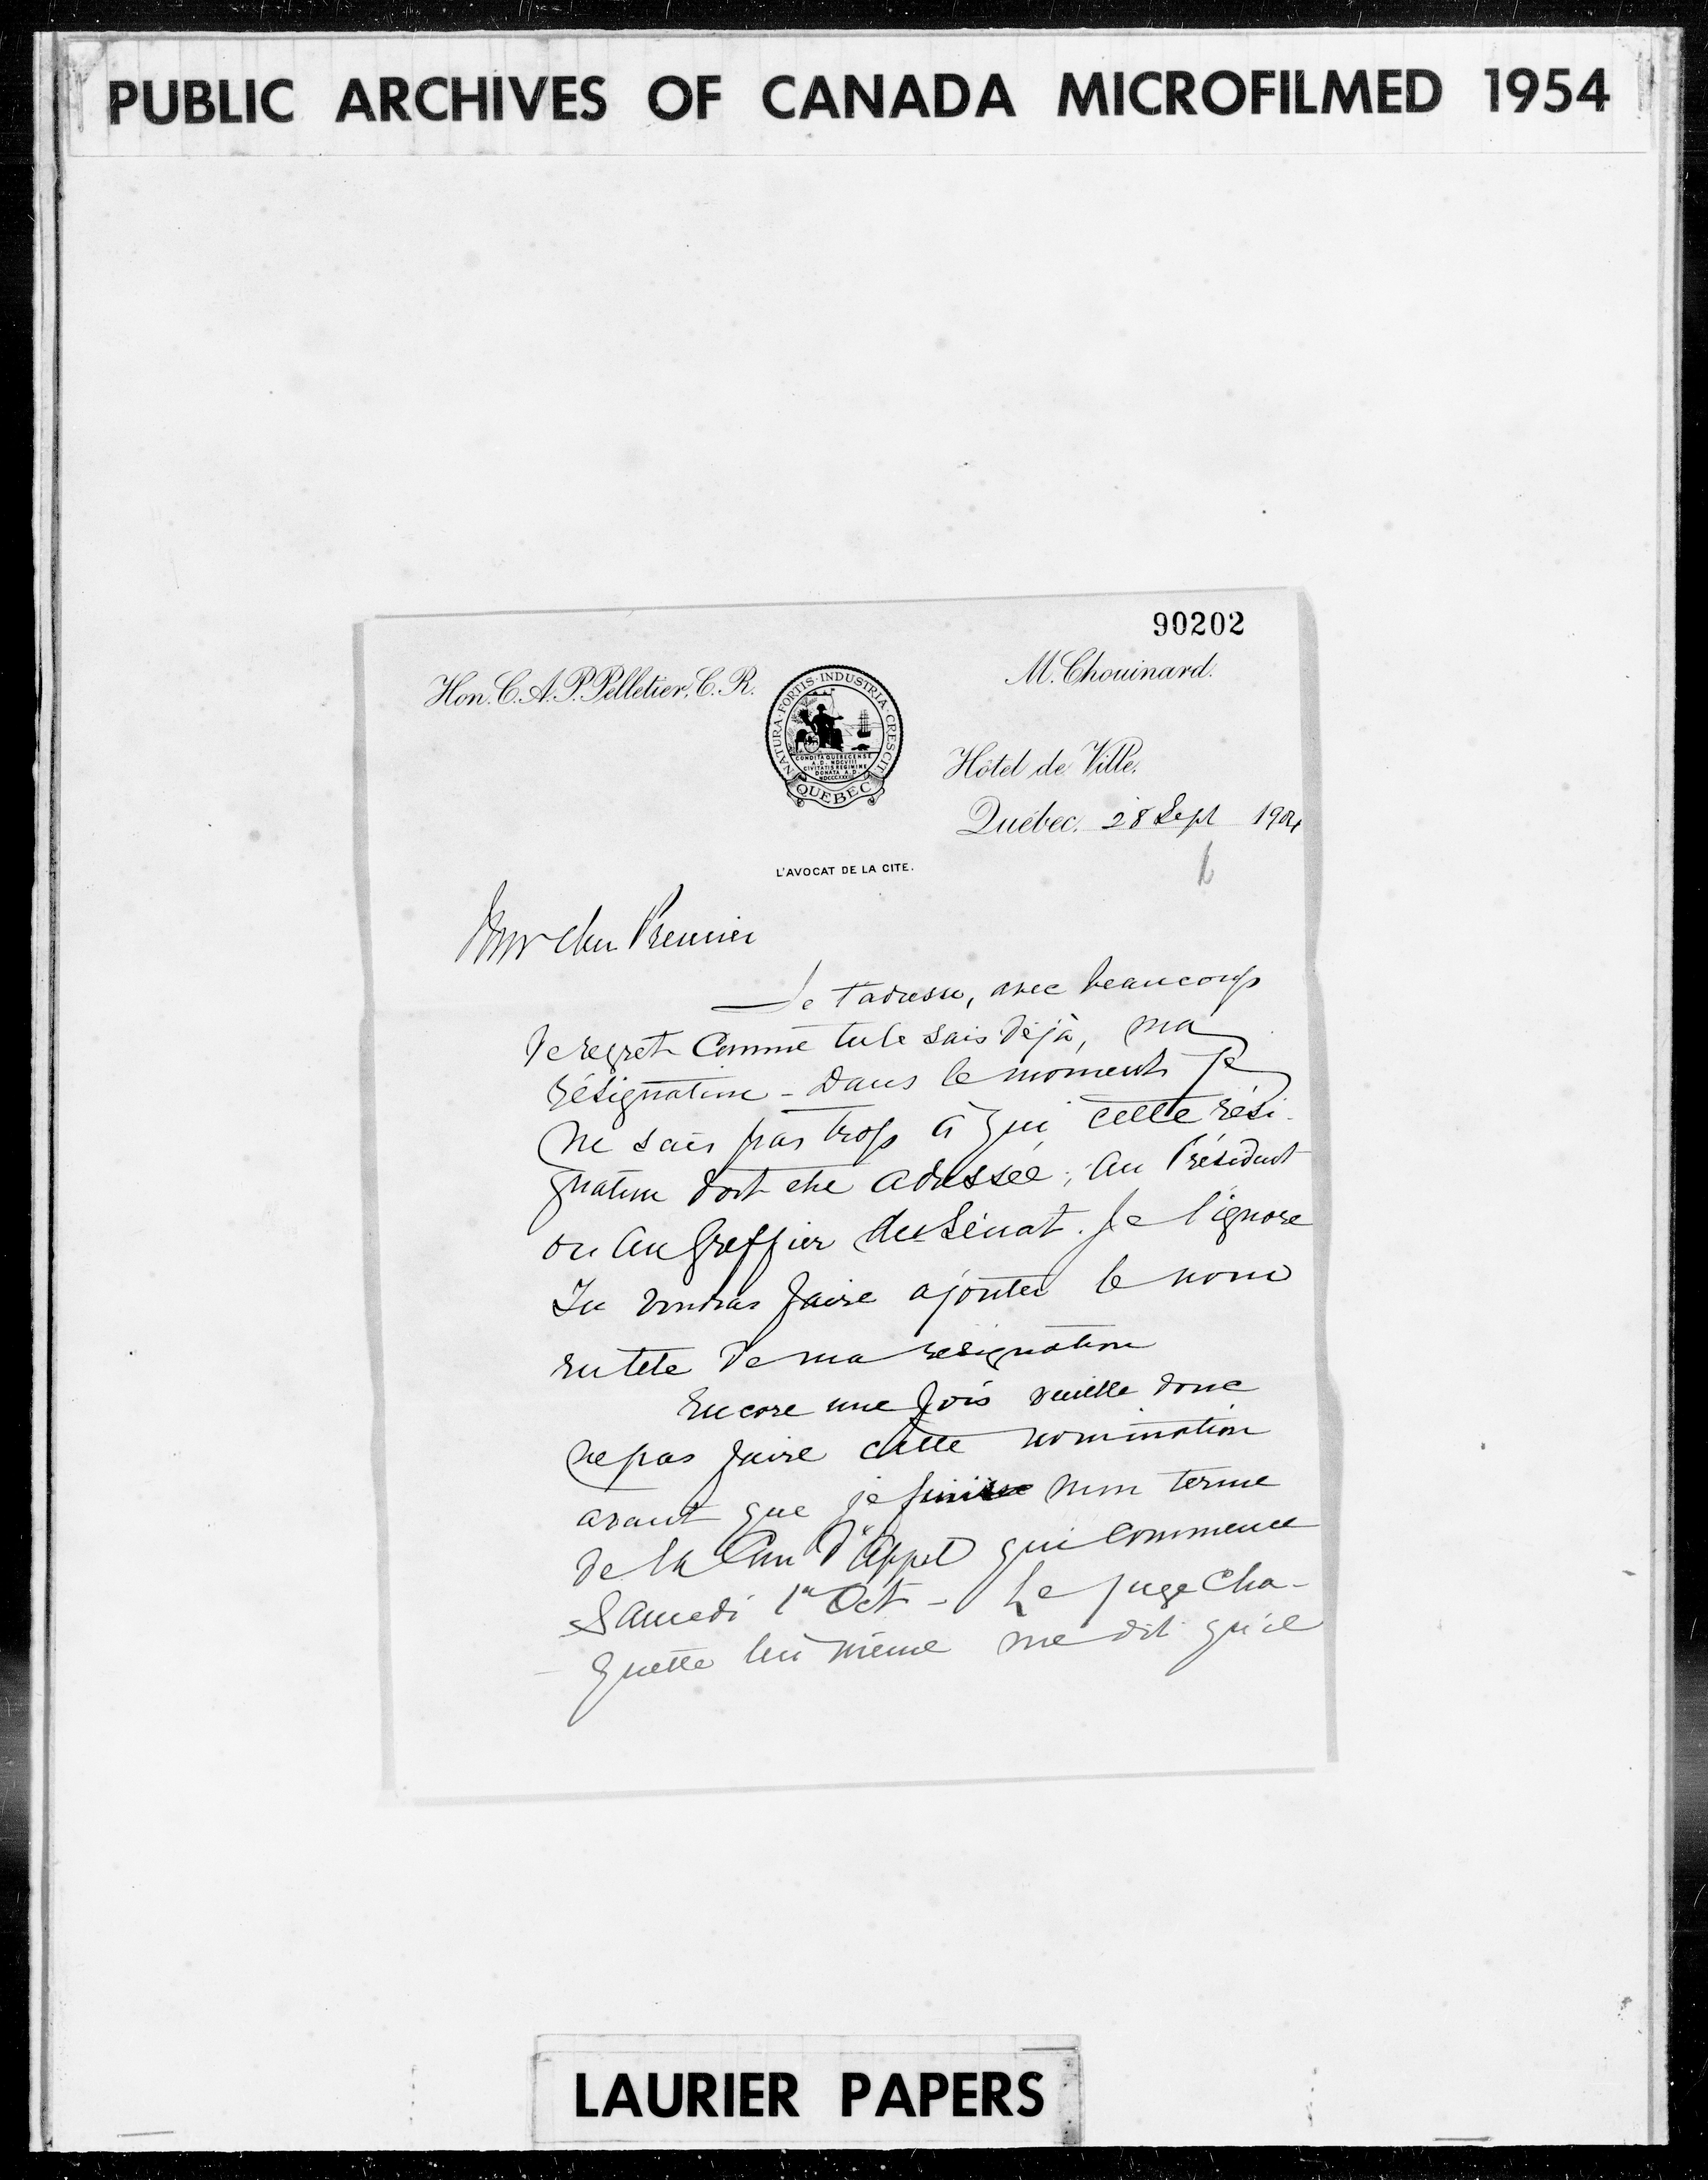 PUBLIC ARCHIVES OF CANADA MICROFILMED 1954
90202
Hon. C. A. P. Pelletier, C. R.
M. Chouinard.
NATURA·FORTIS·INDUSTRIA·CRESCIT
CONDITA QUEBECENSE
A.D. MDCVIII
CIVITATIS REGIMINE
DONATA A.D.
QUEBEC
Hôtel de Ville,
Québec. 28 Sept 1904
L'AVOCAT DE LA CITE.
Mon cher Premier
Je t'adresse, avec beaucoup
de regret comme tu le sais déjà, ma
résignation - Dans le moment je
ne sais pas trop à qui cette rési-
gnation doit etre adressée; au Président
ou au Greffier du Sénat. Je l'ignore
Tu voudras faire ajouter le nom
en tete de ma resignation
Encore une fois veuille donc
ne pas faire cette nomination
avant que je finisse mon terme
de la Cour d'Appel qui commence
Samedi 1er Oct - Le juge Cha-
quette lui même me dit qu'il
LAURIER PAPERS